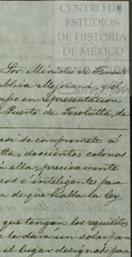 CENTRO DE
ESTUDIOS
DE HISTORIA
DE MEXICO
Por Ministro de Fomento
ública Mejicana, y al
mpo en representacion
Puerto de Tecolutla, de
asi se compromete á
tta, doscientos colonos
ella, precisamente
cos é inteligentes para
de que habla la ley
que tengan los requisitos
le dará un solar pa
el lugar designado para